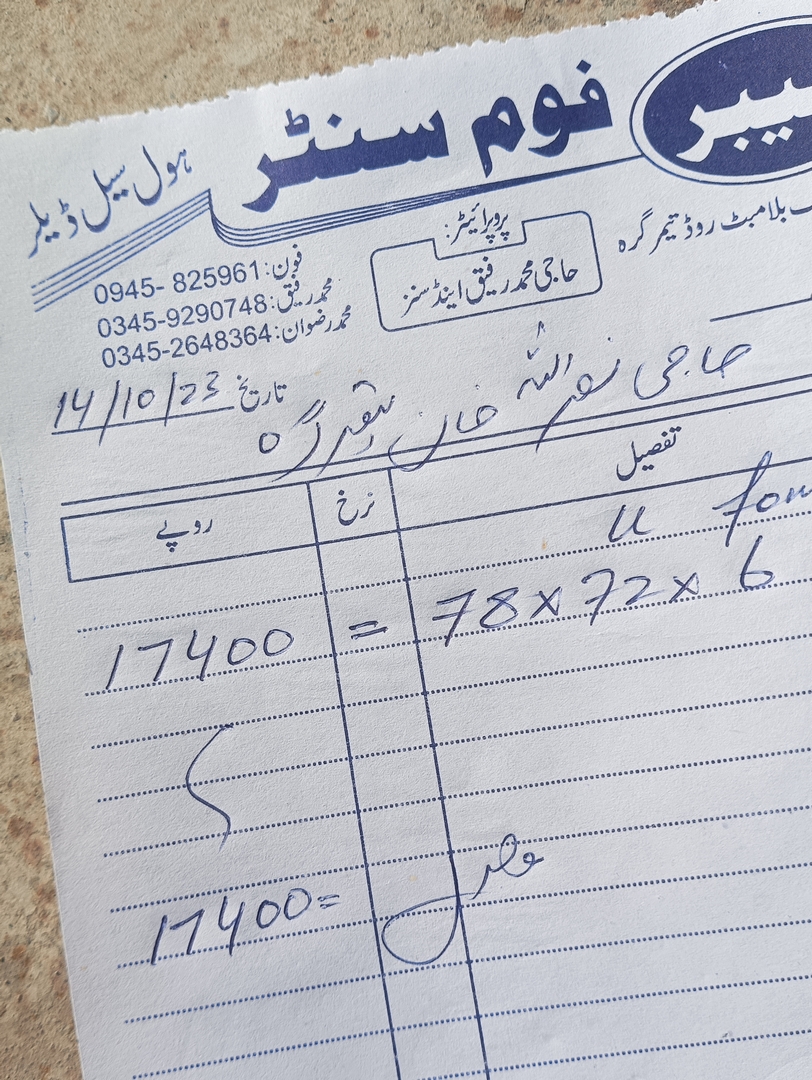 فوم سنٹر
ہول سیل ڈیلر
بلامبٹ روڈ تیمرگرہ
پروپرائیٹر:
حاجی محمد رفیق اینڈ سنز
فون: 0945- 825961
محمد رفیق: 0345-9290748
محمد رضوان: 0345-2648364
تاریخ 14/10/23
حاجی نصر اللہ خان
تفصیل نرخ روپے
78x72x 6 = 17400
17400=